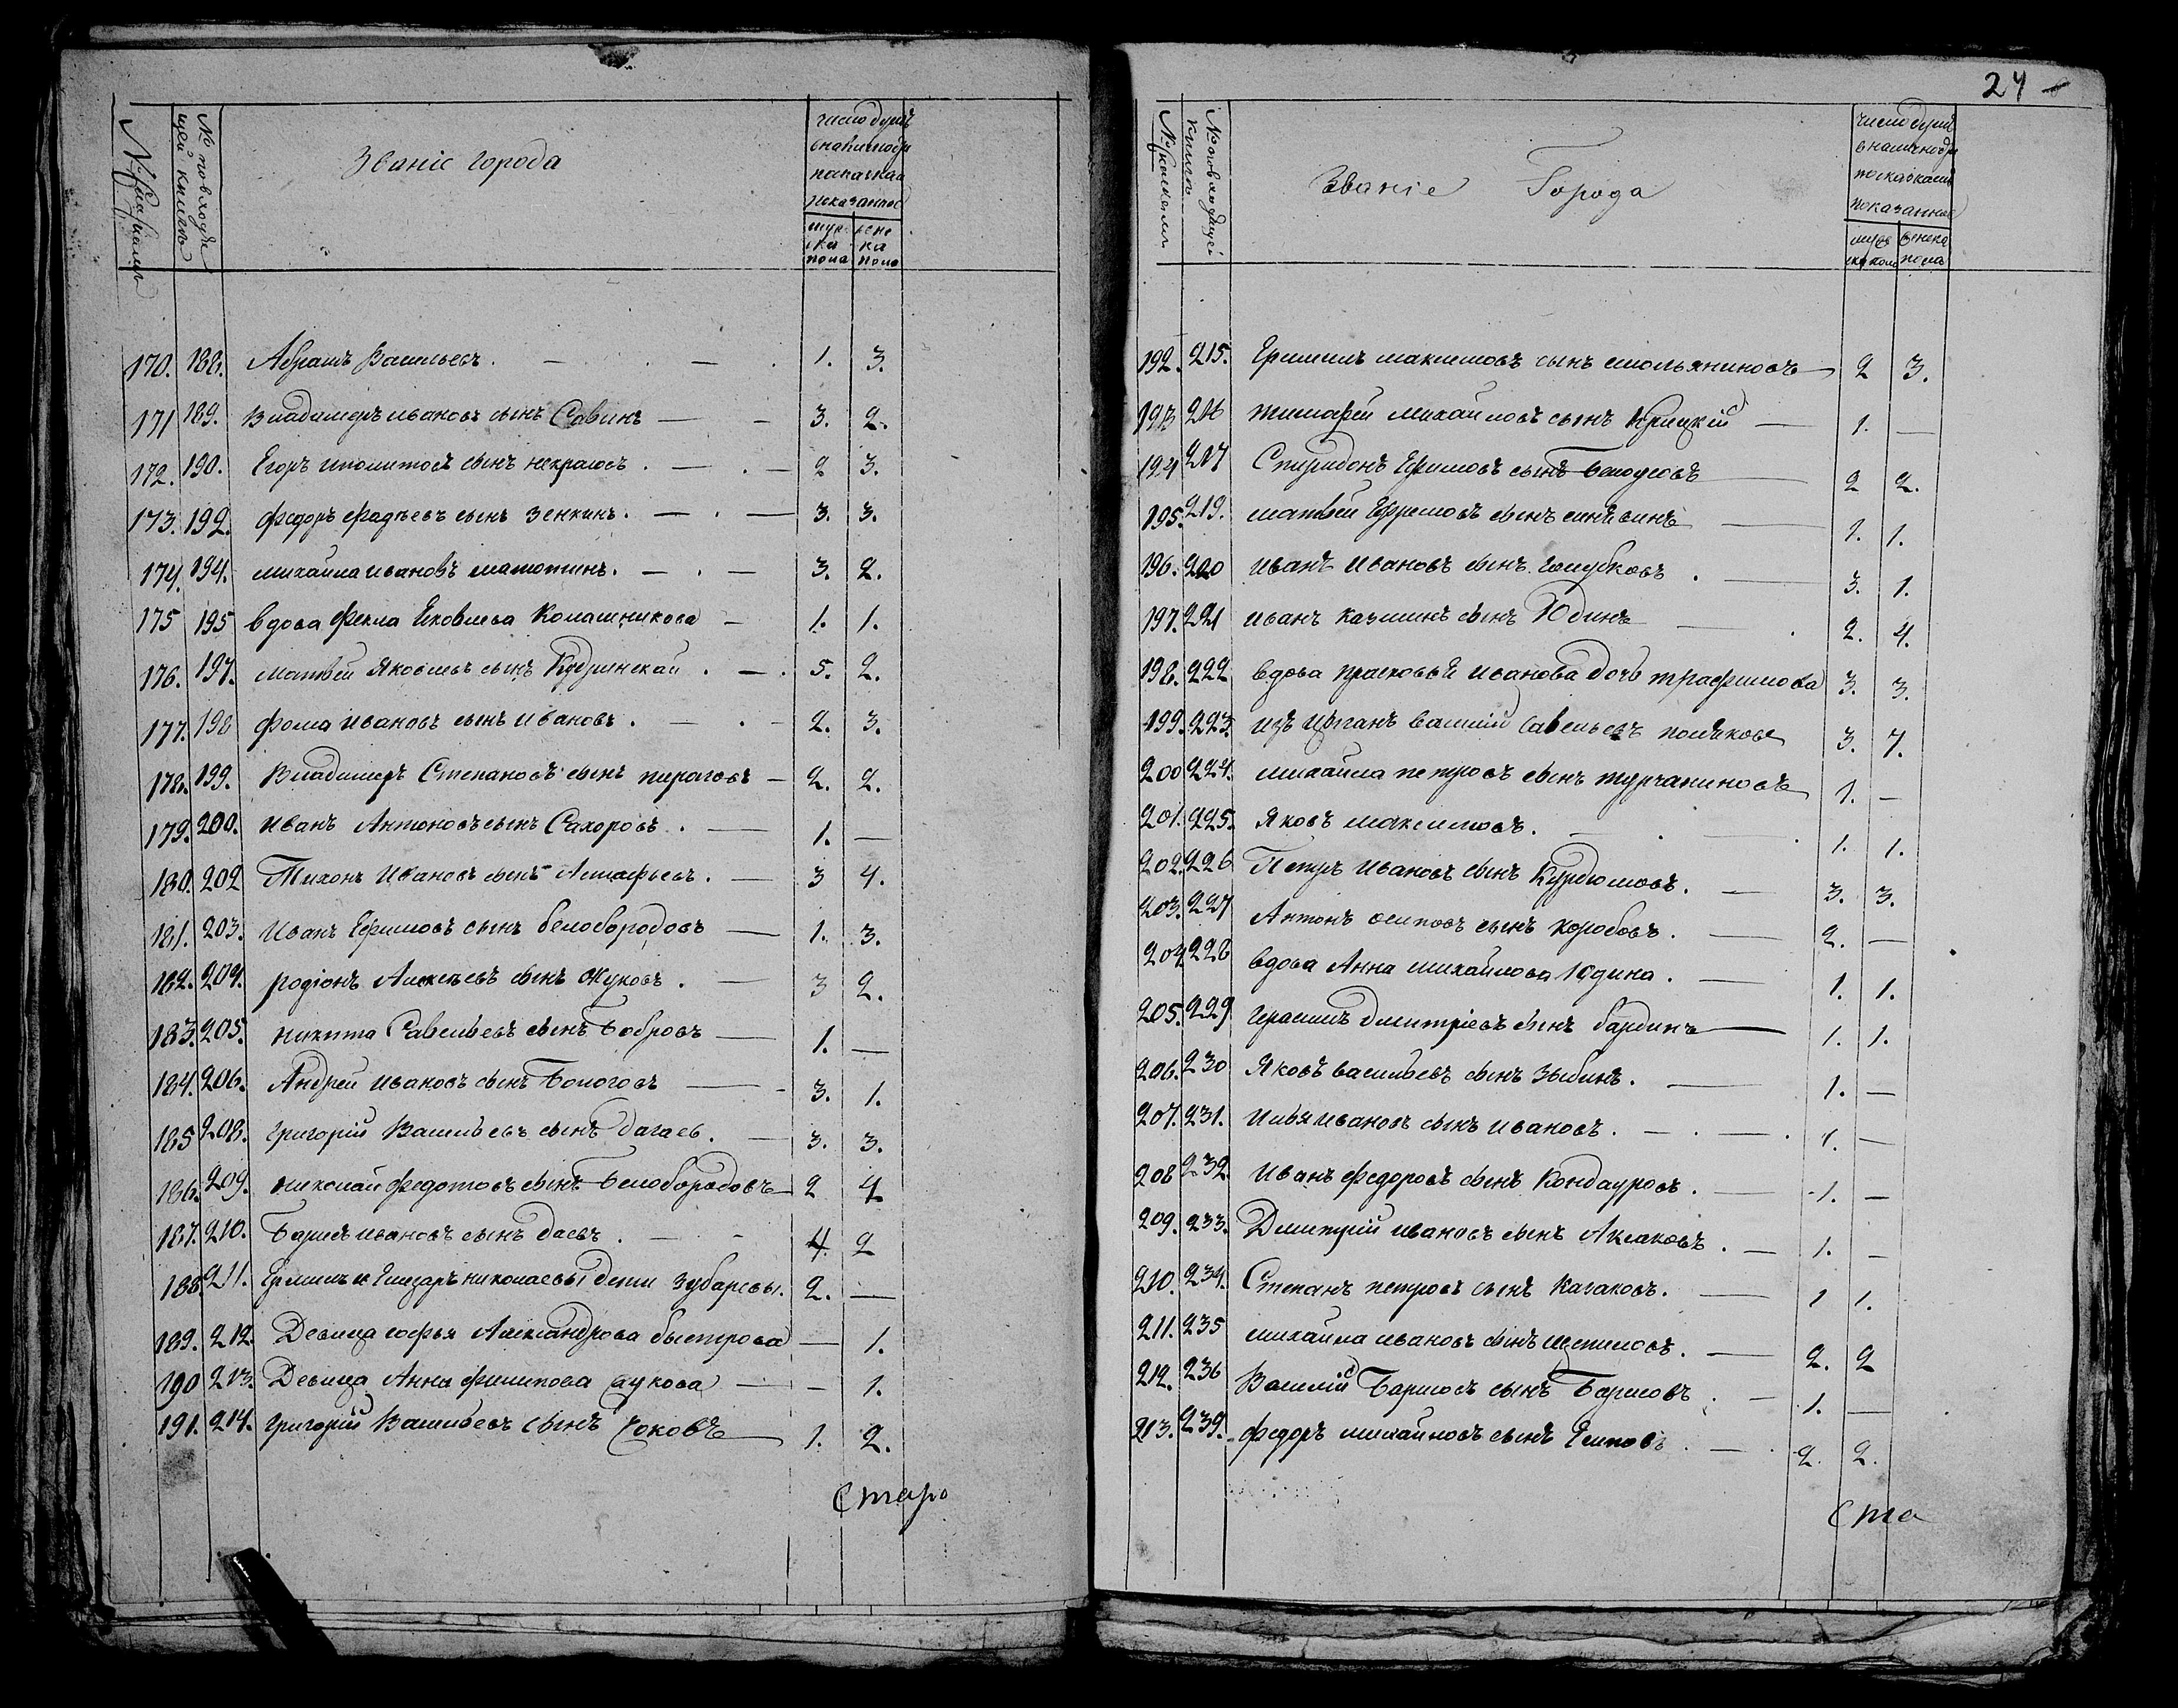 24
№ по входя
щей книгѣ
Званіе города
число душъ
показанное
муже
ска
пола
жене
ка
пола
170. 188. Абрамъ Васильевъ. — 1. 3.
171 189. Владимеръ ивановъ сынъ Савинъ — 3. 2.
172. 190. Егоръ иполитовъ сынъ некрасовъ. — 2 3.
173. 192. федоръ фадѣевъ сынъ зенкинъ. — 3. 3.
174. 194. михайла ивановъ матюшинъ. — 3. 2.
175 195 вдова Фекла Яковлева Колашникова — 1. 1.
176. 197. матвей Яковлевъ сынъ Кудринской. — 5. 2.
177. 198 фома ивановъ сынъ ивановъ. — 2. 3.
178. 199. Владимеръ Степановъ сынъ пироговъ — 2. 2.
179. 200. иванъ Антоновъ сынъ Сахоровъ. — 1. —
180. 202 Тихонъ Ивановъ сынъ Астафьевъ. — 3 4.
181. 203. Иванъ Ефимовъ сынъ белобородовъ — 1. 3.
182. 204. родіонъ Алексѣевъ сынъ Жуковъ. — 3 2.
183. 205. никита Савельевъ сынъ Бобровъ — 1. —
184. 206. Андрей ивановъ сынъ Бологовъ — 3. 1.
185 208. григорій Васильевъ сынъ багаев. — 3. 3.
186. 209. николай федотовъ сынъ Белобородовъ 2 4
187. 210. Барисъ ивановъ сынъ баевъ. — 4. 2
188 211. Ермилъ и Елизаръ николаевы дети зубаревы. 2. —
189. 212. Девица софья Александрова быстрова — 1.
190 213. Девица Анна филипова — 1.
191. 214. григорій Васильевъ сынъ — 1. 2.
Старо
№ по входящей
книге
Званіе Города
число душъ
показанное
муже
ска пола
женска
пола
192. 215. Ермилъ максимовъ сынъ смольяниновъ 2 3.
193 216 тимофей михайловъ сынъ Крицкій — 1. —
194 217 Спиридонъ Ефимовъ сынъ Белоусовъ — 2 2.
195. 219. матвей Ефремовъ сынъ — 1. 1.
196. 220 иванъ ивановъ сынъ голубковъ. — 3. 1.
197. 221 иванъ казминъ сынъ Юдинъ — 2. 4.
198. 222 вдова прасковья иванова дочь трафимова 3. 3.
199. 223. изъ цыганъ василій савельевъ поляковъ 3. 7.
200 224. михайла петровъ сынъ турчаниновъ 1. —
201. 225. Яковъ максимовъ. — 1. 1.
202. 226 Петръ Ивановъ сынъ Курдюмовъ. — 3. 3.
203. 227 Антонъ осиповъ сынъ коробовъ. — 2. —
204 228 вдова Анна михайлова Юдина. — 1. 1.
205. 229 герасимъ дмитріевъ сынъ бардинъ — 1. 1.
206. 230 Яковъ васильевъ сынъ Зыбинъ. — 1. —
207. 231. Илья ивановъ сынъ ивановъ. — 1. —
208 232. Иванъ федоровъ сынъ Кондауровъ. — 1. —
209. 233. Дмитрій ивановъ сынъ Аксаковъ. — 1. —
210. 234. Степанъ петровъ сынъ казаковъ. — 1 1.
211. 235 михайла ивановъ сынъ — 2. 2
212. 236 Василій Барисовъ сынъ Барисовъ. — 1. —
213. 239. федоръ михайловъ сынъ Есиповъ. — 2. 2.
Ста